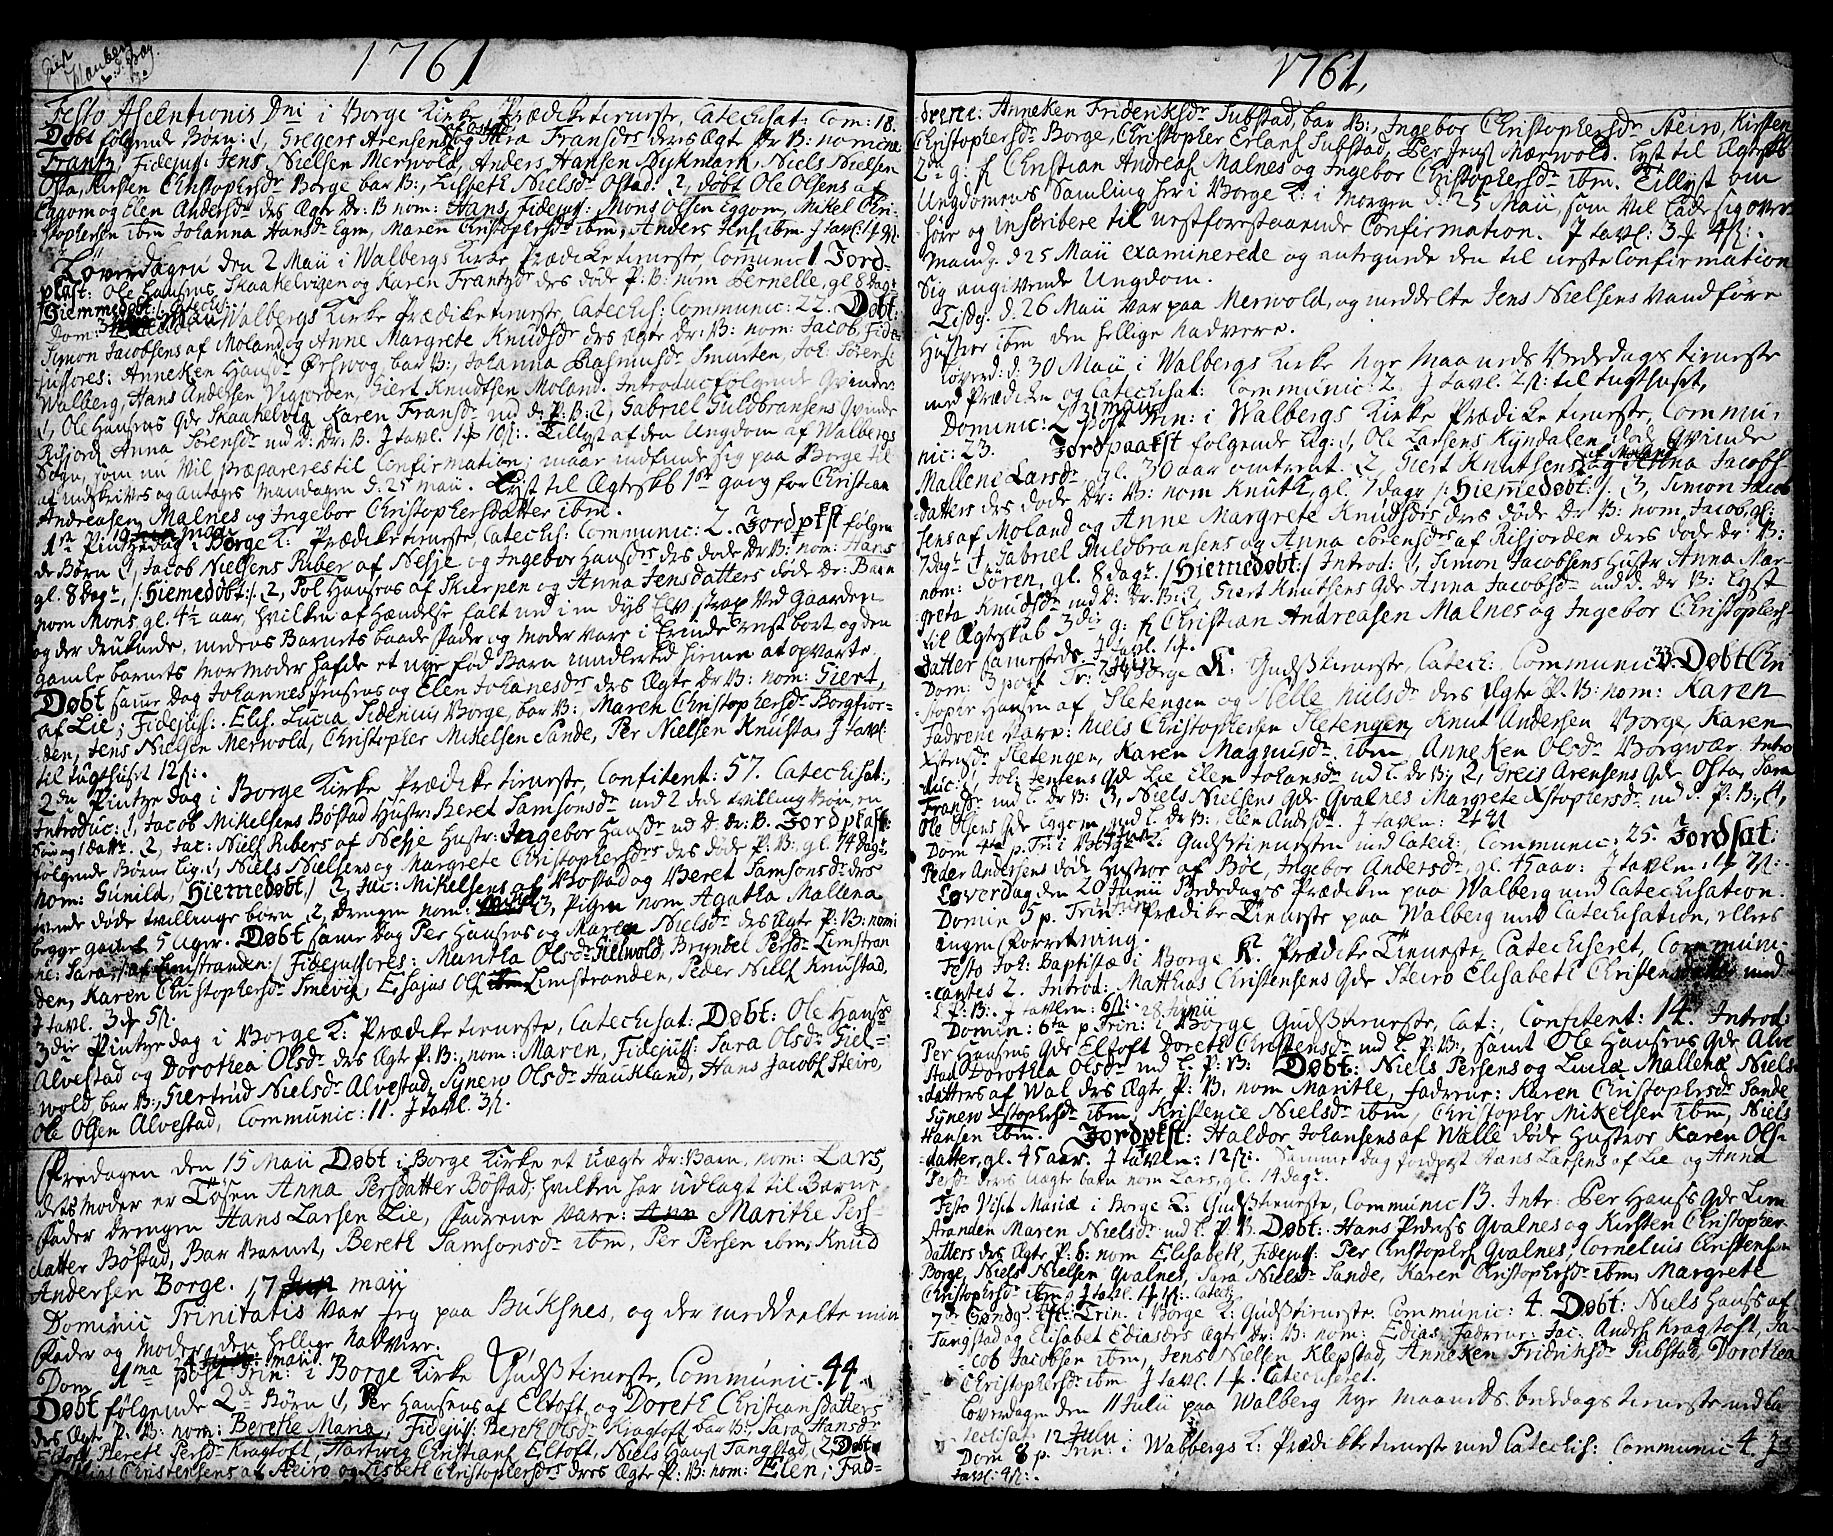 1761
Festo Ascentionis Dni i Borge Kirke Prædiketieneste, Catechisat: Com: 18.
Døbt følgende Børn: 1, Gregers Arensens og Sara Fransdr deres Ægte Pr B: nomine
Frantz Fidejuss: Jens Nielsen Merwold, Anders Hansen Dykmark, Niels Nielsen
Osta, Kirsten Christophersdr Borge bar B:, Lisbeth Nielsdr Ostad. 2, døbt Ole Olsens af
Eggom og Elen Andersdr des Ægte Dr: B nom: Hans, Fidejuss: Mons Olsen Eggom, Mikel Chri-
stophersen ibm Johanna Hansdr Egm, Maren Christophersdr ibm, Anders Jens ibm. J tavl:
Løverdagen den 2 Maii i Walbergs Kirke Prædiketieneste, Comunic 1 Jord-
pkast: Ole Hansens Skaakelvigen og Karen Frantzdr des døde P: B: nom Pernelle, gl 8 dagr
Hiemmedøbt
Dom: Walbergs Kirke Prædiketieneste, Catechis: Communic: 22. Døbt:
Simon Jacobsens af Moland og Anne Margrete Knudsdr des Ægte Dr: B: nom: Jacob, Fide-
jussores: Anneken Hansdr Ørswog, bar B:, Johanna Rasmusdr Smorten, Joh: Sørens
Walberg, Hans Andersen Vigjorden, Giert Knudtsen Moland. Introduc følgende Qvinder
1, Ole Hansens Qde Skaakelvig Karen Fransdr md d: P: B: 2, Gabriel Guldbransens Qvinde
Risjord Anna Sørensdr md d: Dr: B. J tavl. 1 10 Tillyst af den Ungdom af Walbergs
Sogn, som nu vil præpareres til Confirmation; maar indfinde sig paa Borge til
at indskrives og antages Mandagen d: 25 Maii. Lyst til Ægteskb 1ste gang for Christian
Andreasen Malnes og Ingebor Christophersdatter ibm.
1ste Pintzedag i Borge K: Prædiketieneste, Catechis: Communic: 2. Jordpkst følgen
de Børn 1, Jacob Nielsens Riber af Nesje og Ingebor Hansdr des døde Dr B: nom: Hans
gl. 8 dagr, /: Hiemedøbt :/ 2, Pol Hansens af Skierpen og Anna Jensdatters døde Dr: Barn
nom Mons, gl. 4½ aar, hvilken af Hændelse falt ned i en dyb Elv strax ved gaarden
og der drukende, medens Barnets baade Fader og Moder vare i Erinde rest bort og den
gamle barnets mormoder hafde et nye fød Barn imidlertid hieme at opvarte.
Døbt samme Dag Johannes Jensens og Elen Johanesdrs des Ægte Dr B: nom: Giert,
af Lie; Fidejuss: Elis. Lucia Sidenius Borge, bar B:, Maren Christophersdr Borgfior-
den, Jens Nielsen Merwold, Christopher Mikelsen Sande, Per Nielsen Knusta. J tavl:
til tugthuset 12
2den Pintzedag i Borge Kirke Prædiketieneste, Confitent: 57. Catechisat:
Introduc: 1, Jacob Mikelsens Bøstad Hustr: Beret Samsonsdr med 2 døde tvilling Børn, en
Søn og 1 datt. 2, Jac: Niels Ribers af Nesje Hustr: Ingebor Hansdr md d: Dr: B. Jordpkast:
følgende Børns Lig: 1, Niels Nielsens og Margrete Christophersdrs des døde P: B: gl. 14 dagr
nom: Gunild, /: Hiemedøbt :/ 2, Jac: Mikelsens af Bøstad og Beret Samsonsdrs des
tvende døde tvillinge børn 2, drengen nom: 3, Pigen nom Agatha Mallena
begge 5 Uger. Døbt samme Dag Per Hansens og Maren Nielsdr des Ægte P: B: nomi
ne: Sara /: af Limstranden :/ Fidejussores: Maritha Olsdr Helwold, Bryndel Persdr Limstran
den, Karen Christophersdr Smevig, Esajas Ols Limstranden, Peder Niels Knustad,
J tavl. 3 5
3die Pintzedag i Borge K: Prædiketieneste, Catechisat: Døbt: Ole Hans:
Alvestad og Dorothea Olsdr des Ægte P: B:, nom: Maren, Fidejuss: Sara Olsdr Giel-
wold bar B:, Giertrud Nielsdr Alvestad, Synew Olsdr Haukland, Hans Jacobs Steiro,
Ole Olsen Alvestad, Communic: 11. J tavl. 3
Fredagen den 15 Maii Døbt i Borge Kirke et uægte Dr: Barn, nom: Lars,
dets moder er Tøsen Anna Persdatter Bøstad, hvilken har udlagt til Barne
Fader drengen Hans Larsen Lie, Fadrene vare: Marithe Pers-
datter Bøstad, Bar Barnet, Bereth Samsonsdr ibm, Per Persen ibm, Knud
Andersen Borge. 17 maii
Dominic Trinitatis var jeg paa Buksnes, og der meddeelte min
Fader og Moder den hellige Nadvere.
Dom 1ma post Trin: i Borge Kirke Gudstieneste, Communic. 44.
Døbt følgende 2de Børn 1, Per Hansens af Eltoft og Doreth Christiansdatters
des Ægte P: B: nom: Berethe Maria, Fidejuss: Bereth Olsdr Kragtoft bar B:, Sara Hansdr
Eltoft, Bereth Persdr Kragtoft, Hartwig Christians Eltoft, Niels Hans Tangstad, 2, Døbt
Christensens af Steiro og Lisbeth Christophersdrs des Ægte P: B: nom: Elen, Fad-
1761,
derene: Anneken Frideriksdr Substad, bar B:, Ingebor Christophersdr Steiro, Kirsten
Christophersdr Borge, Christopher Erlans Substad, Per Jens Mærwold. Lyst til Ægtesk:
2den g: f Christian Andreas Malnes og Ingebor Christophersdr ibm. Tillyst om
Ungdomens Samling her i Borge K: i Morgen d: 25 Maii, som vil lade sig over-
høre og inscribere til nestforestaaende Confirmation. J tavl: 3 4
Mand: d 25 Maii examinerede og antegnede den til neste Confirmation
sig angivende Ungdom.
Tisdg. d. 26 Maii var paa Merwold, og meddelte Jens Nielsens Vandføre
Hustroe ibm den hellige Nadvere.
Løverd: d. 30 Maii i Walbergs Kirke Nye Maaneds Bededags tieneste
med Prædiken og Catechisat: Communic: 2. J tavl. 2 til tugthuset,
31 maii
Dominic: 2 post Trin: i Walbergs Kirke Prædiketieneste, Commu-
nic: 23. Jordpaakst følgende Lig: 1, Ole Larsens Kyndalen døde Qvinde
Mallene Larsdr gl. 30 aar omtrent. 2, Giert Knutsens af Moland og Anna Jacobs
datters des døde Dr: B: nom Knuth, gl. 7 dagr /: Hiemedøbt :/. 3, Simon Jacob
sens af Moland og Anne Margrete Knudsdrs des døde Dr B: nom, Jacob, gl:
7 dagr Gabriel Guldbransens og Anna Sørensdrs af Risjorden des døde Dr: B:
nom: Søren, gl. 8 dagr. /: Hiemedøbt :/ Introd: 1, Simon Jacobsens Hustr Anna Mar-
greta Knudsdr md d: Dr: B: 2, Giert Knutsens Qde Anna Jacobsdr md d. Dr B: Lyst
til Ægteskab 3die g: f Christian Andreasen Malnes og Ingebor Christophers-
datter J tavl. 1
Dom: 3 post Tr: i Borge K: Gudstieneste, Catech: Communic 33. Døbt Chri
stopher Hansen af Sletengen og Nelle Nielsdr des Ægte P: B: nom: Karen
Fadrene vare: Niels Christophersen Sletengen, Knut Andersen Borge, Karen
Sletengen, Karen Magnusdr ibm, Anneken Olsdr Borgwær. Intro
duc: 1, Joh: Jensens Qde Lie Elen Johansdr md l. Dr B:, 2, Greis Arensens Qde Osta, Sara
Fransdr md l. Dr B: 3, Niels Nielsens Qde Qvalnes Margrete Xstophersdr md d. P: B:, 4,
Ole Olsens Qde Eggom md l. Dr B: Elen Andsdr. J tavlen:
Dom 4ta p. Trin i Borge K: Gudstienesten med Catech: Communic: 25. Jordsat:
Peder Andersens døde Hustroe af Bøe, Ingebor Andersdr, gl. 45 aar: J tavlen. 1 7
Løverdag den 20 Junii Bededags Prædiken paa Walberg med Catechisation.
Domin 5 p. Trin: Prædike Tieneste paa Walberg med Catechisation, ellers
ingen Forretning.
Festo Joh: Baptistæ i Borge K: Prædike Tieneste, Catechiseret, Commun-
cantes 2. Introd: Mathias Christensens Qde Steiro Elisabeth Christens md
l. P: B:. J tavlen: 6 28 Junii
Domin: 6ta p Trin: i Borge Gudstieneste, Cat:, Confitent: 14. Introd
Per Hansens Qde Eltoft Doreth Christensdr md l. P: B:, samt Ole Hansens Qde Alve
stad Dorothea Olsdr md l. P: B: Døbt: Niels Persens og Lucia Mallena Niels-
datters af Wal des Ægte P: B. nom Marithe, Fadrene: Karen Christophersdr Sande
Synew Xstophersdr ibm, Kristence Nielsdr ibm, Christopher Mikelsen ibm, Niels
Hansen ibm. Jordpkst: Haldor Johansens af Walle døde Hustroe Karen Ols-
datter, gl. 45 aar. J tavlen: 12 Samme dag jordpst Hans Larsens af Lie og Anna
Persdr deres Uægte barn nom Lars, gl. 14 dagr.
Festo Visit Mariæ i Borge K: Gudstieneste, Communic 13. Intr: Per Hanss Qde Lim
stranden Maren Nielsdr md l. P. B. Døbt: Hans Peders Qvalnes og Kirsten Christopher
datters des Ægte P. b: nom Elisabeth, Fidejuss: Per Christophers Qvalnes, Cornelius Christensen
Borge, Niels Nielsen Qvalnes, Sara Nielsdr Sande, Karen Christophersdr ibm, Margrete
Christophersdr ibm, J tavl.
7de Søndg eft: Trin. i Borge K: Gudstieneste. Communic: 4. Døbt: Niels Hanss af
Tangstad og Elisabet Ediasdrs Ægte Dr: B: nom: Edias, Fadrene: Jac. Anders Kragtoft, Ja-
cob Jacobsen ibm, Jens Nielsen Klepstad, Anneken Fridriksdr Substad, Dorothea
Christophersdr ibm J tavl. 1 Catechiseret.
Løverdagen den 11 Julii paa Walberg Nye maaneds bededags tieneste med Ca
techisat: 12 Julii
Dom 8 p. Trin: i Walbergs K: Prædikketieneste med Catechis: Communic 4.
tavl: